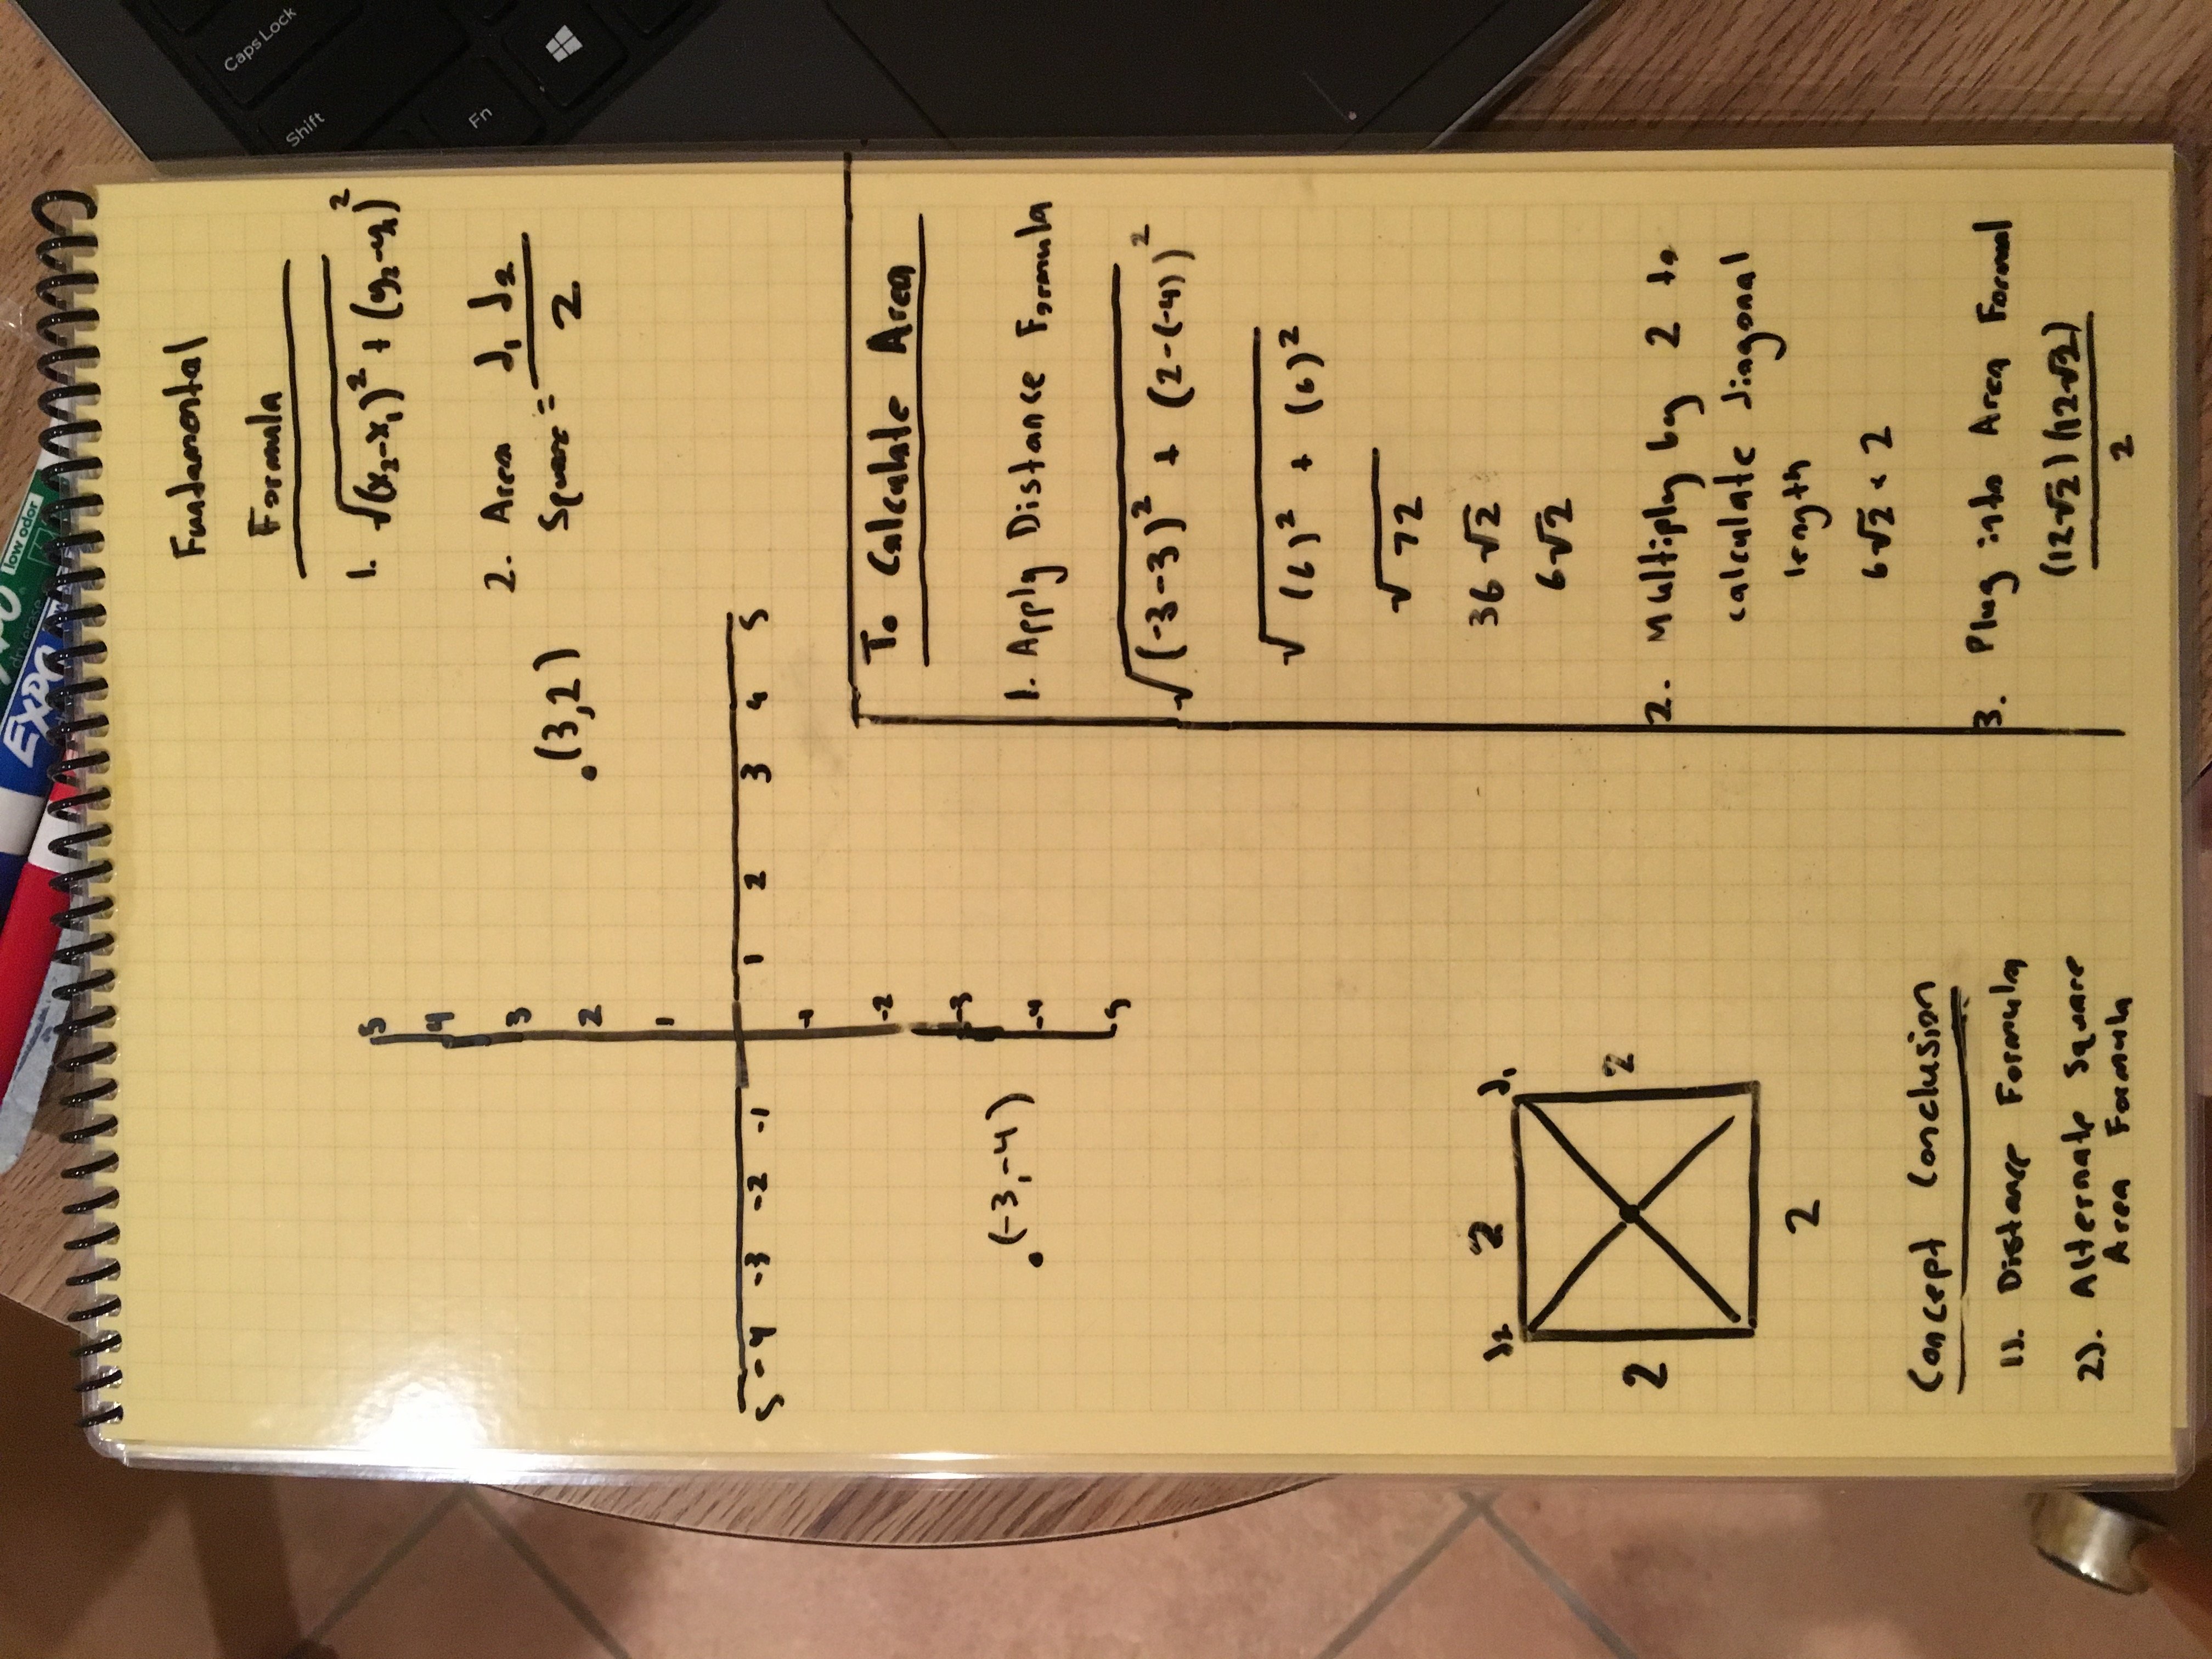 Caps Lock
Shift
Fn
EXPO
low odor
Fundamental
Formula
1. √(x₂-x₁)² + (y₂-y₁)²
2. Area Square = d₁ d₂ / 2
5
4
3
2
1
-1
-2
-3
-4
-5
5 -4 -3 -2 -1 1 2 3 4 5
.(3,2)
.(-3,-4)
To Calculate Area
1. Apply Distance Formula
√(-3-3)² + (2-(-4))²
√(6)² + (6)²
√72
36√2
6√2
2. Multiply by 2 to
calculate diagonal
length
6√2 × 2
3. Plug into Area Formal
(12√2)(12√2) / 2
d₂ 2 d₁
2 2
2
Concept Conclusion
1). Distance Formula
2). Alternate Square
Area Formula